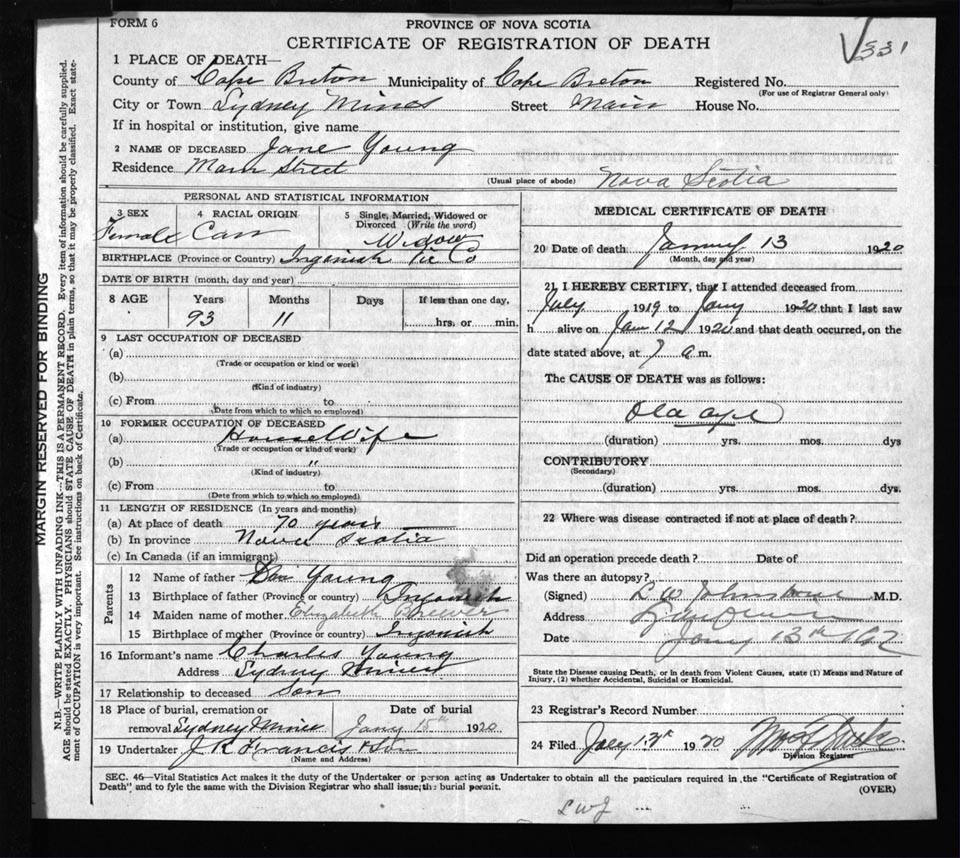 FORM 6
PROVINCE OF NOVA SCOTIA
CERTIFICATE OF REGISTRATION OF DEATH
331
1 PLACE OF DEATH—
County of Cape Breton Municipality of Cape Breton Registered No.
(For use of Registrar General only)
City or Town Sydney Mines Street Main House No.
If in hospital or institution, give name
2 NAME OF DECEASED Jane Young
Residence Main Street Nova Scotia
(Usual place of abode)
PERSONAL AND STATISTICAL INFORMATION
3 SEX 4 RACIAL ORIGIN 5 Single, Married, Widowed or Divorced (Write the word)
Female Widow
BIRTHPLACE (Province or Country) Ingonish Vic Co
DATE OF BIRTH (month, day and year)
8 AGE Years Months Days If less than one day,
93 11 hrs. or min.
9 LAST OCCUPATION OF DECEASED
(a)
(Trade or occupation or kind or work)
(b)
(Kind of industry)
(c) From to
(Date from which to which so employed)
10 FORMER OCCUPATION OF DECEASED
(a) House Wife
(Trade or occupation or kind of work)
(b) "
(Kind of industry)
(c) From to
(Date from which to which so employed)
11 LENGTH OF RESIDENCE (In years and months)
(a) At place of death 70 years
(b) In province Nova Scotia
(c) In Canada (if an immigrant)
Parents
12 Name of father Young
13 Birthplace of father (Province or country) Ingonish
14 Maiden name of mother Elizabeth Brewer
15 Birthplace of mother (Province or country) Ingonish
16 Informant's name Charles Young
Address Sydney Mines
17 Relationship to deceased Son
18 Place of burial, cremation or removal Sydney Mines Date of burial Jany 15th 1920
19 Undertaker J R Francis & Son
(Name and Address)
MEDICAL CERTIFICATE OF DEATH
20 Date of death January 13 1920
(Month, day and year)
21 I HEREBY CERTIFY, that I attended deceased from
July 1919 to Jany 1920 that I last saw
h alive on Jan 12 1920 and that death occurred, on the
date stated above, at a.m.
The CAUSE OF DEATH was as follows:
Old age
(duration) yrs. mos. dys
CONTRIBUTORY
(Secondary)
(duration) yrs. mos. dys.
22 Where was disease contracted if not at place of death?
Did an operation precede death? Date of
Was there an autopsy?
(Signed) L W Johnstone M.D.
Address
Date Jany 13th
State the Disease causing Death, or in death from Violent Causes, state (1) Means and Nature of Injury, (2) whether Accidental, Suicidal or Homicidal.
23 Registrar's Record Number
24 Filed 1920
Division Registrar
SEC. 46—Vital Statistics Act makes it the duty of the Undertaker or person acting as Undertaker to obtain all the particulars required in the "Certificate of Registration of
Death" and to fyle the same with the Division Registrar who shall issue the burial permit. (OVER)
LWJ
MARGIN RESERVED FOR BINDING
N.B.—WRITE PLAINLY WITH UNFADING INK—THIS IS A PERMANENT RECORD. Every item of information should be carefully supplied.
AGE should be stated EXACTLY. PHYSICIANS should STATE CAUSE OF DEATH in plain terms, so that it may be properly classified. Exact state-
ment of OCCUPATION is very important. See instructions on back of Certificate.